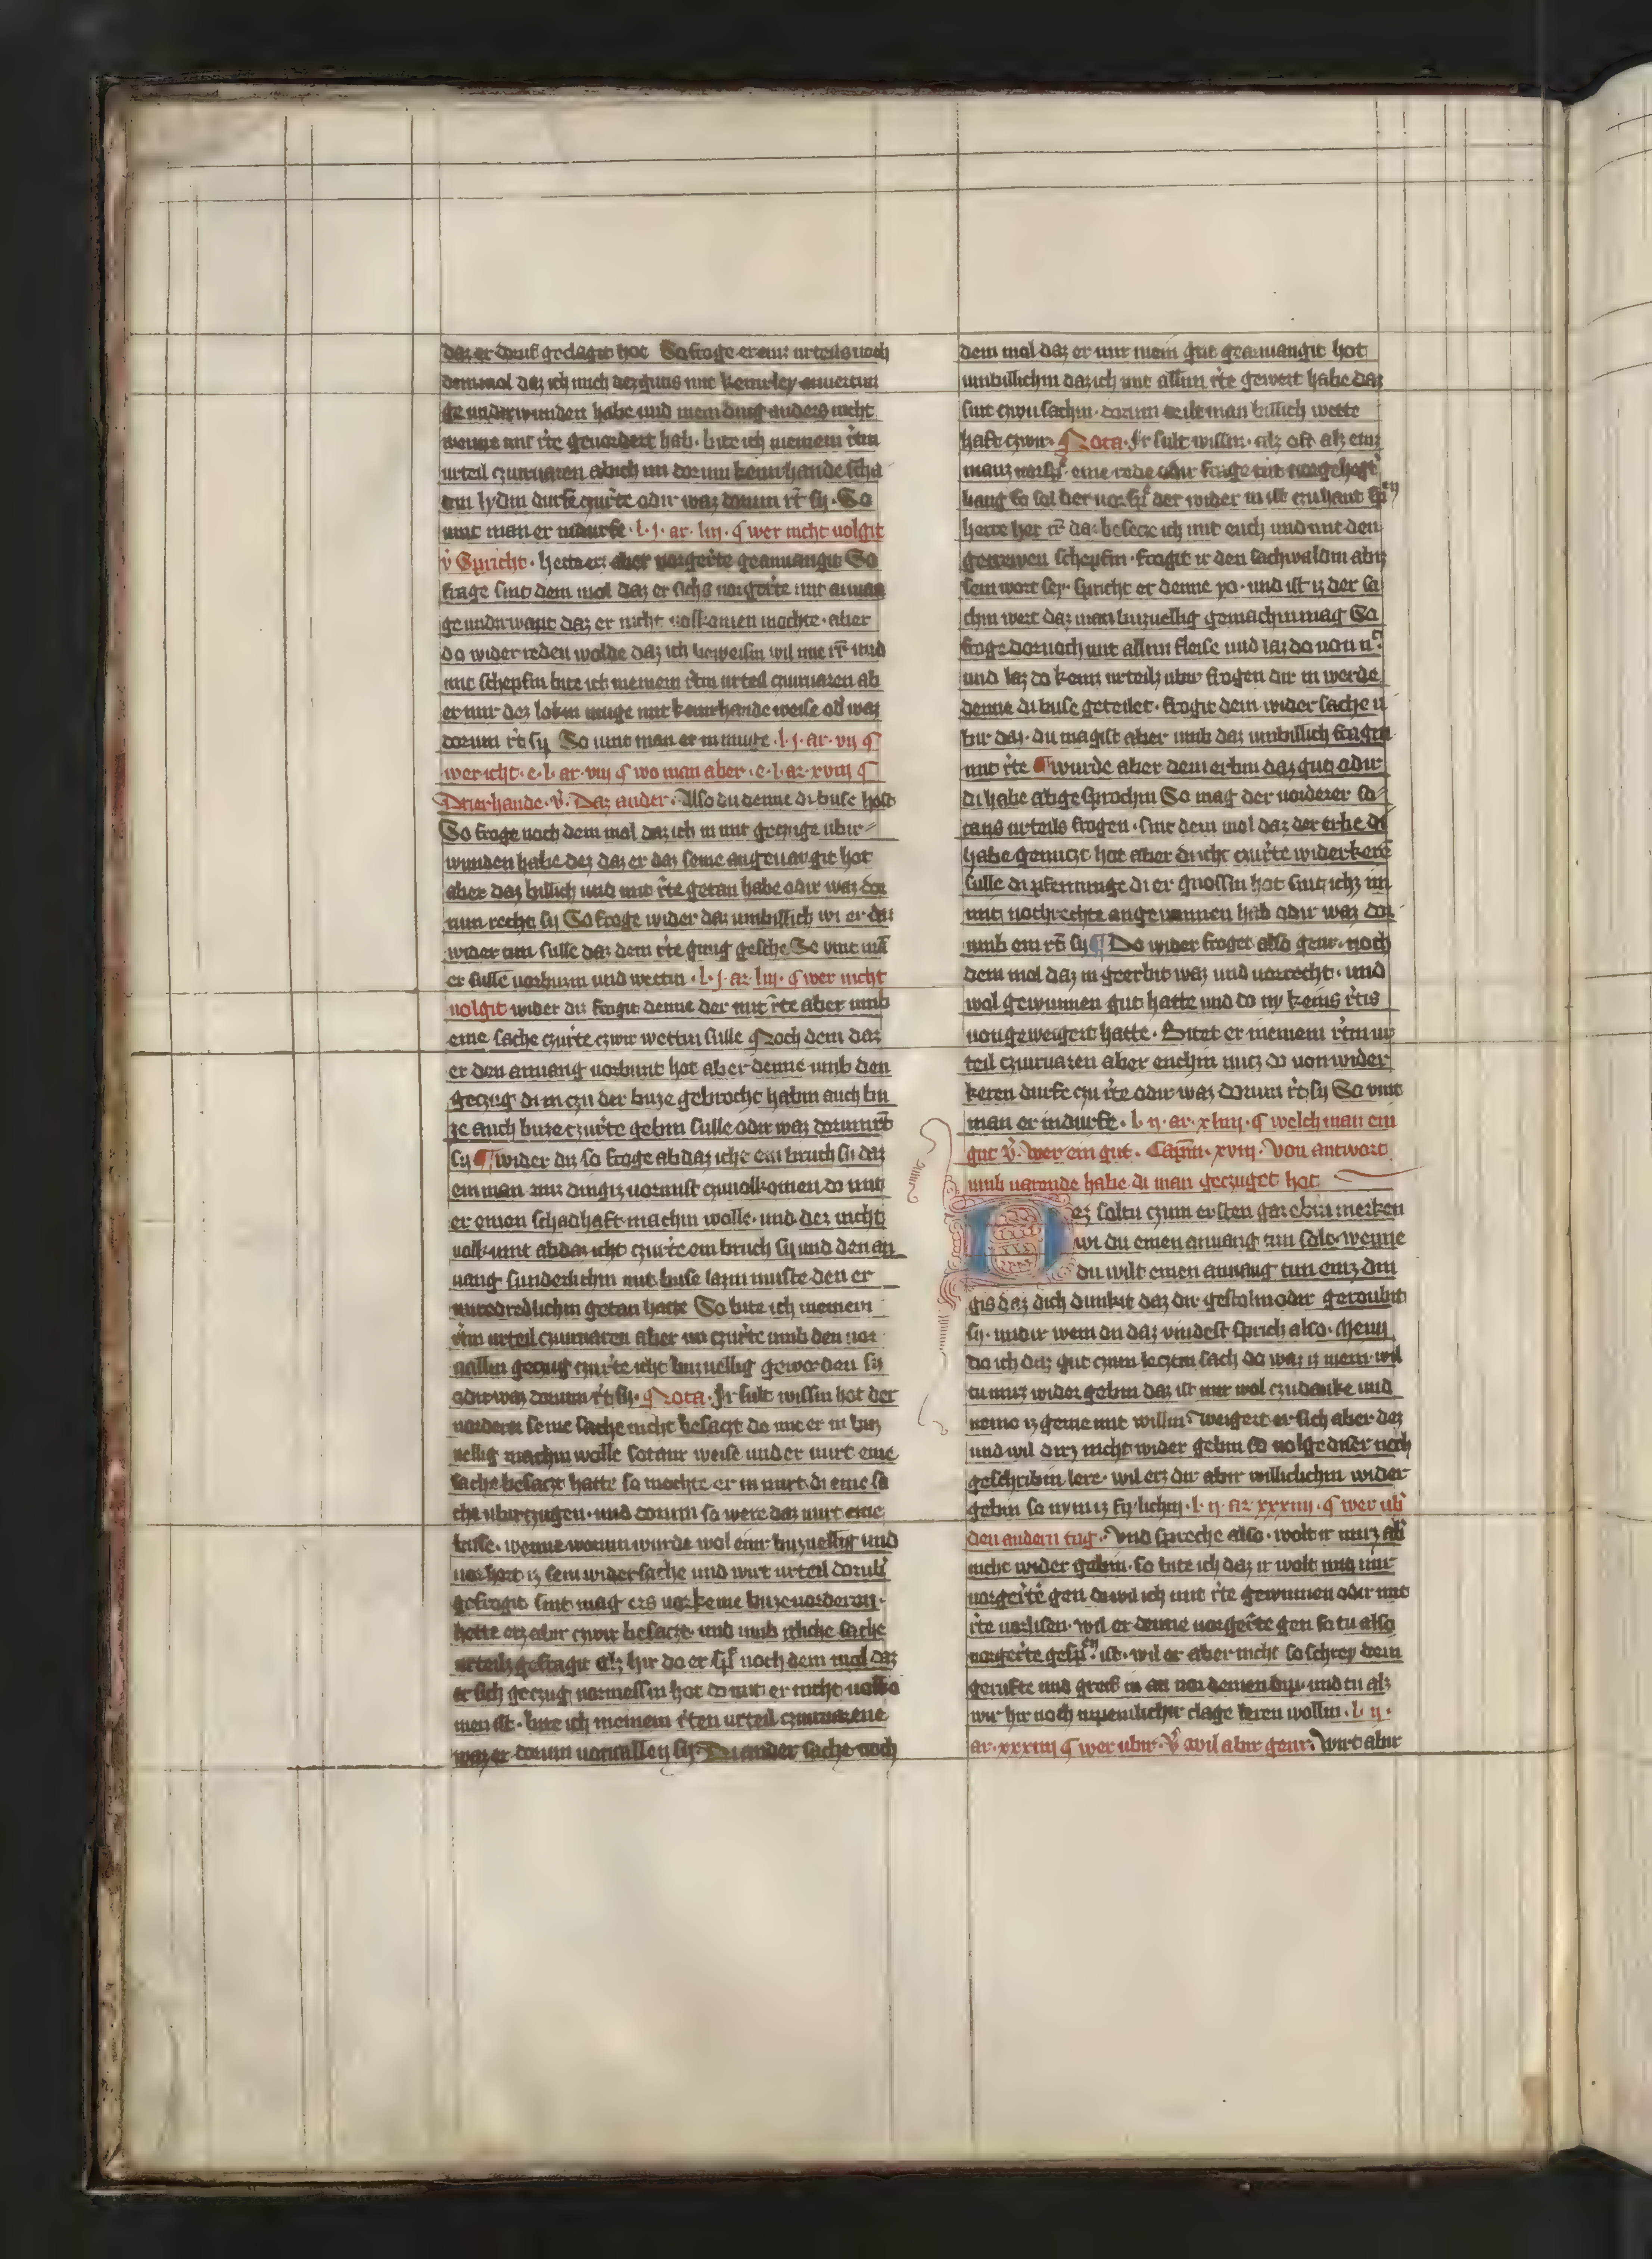 daz er doruf geclagit hot So froge er einz urteils noch
demmol daz ich mich dez gutis mit keinerley anuertin
ge undirwunden habe und mein ding anders nicht
wenne mit rͨte geuordert hab · bite ich meinem rͨtin
urteil czuuaren ab ich im dorum keinirhande scha
din lydin durfe czurͨte odir waz dorum rͨt sy · So
uint man er indurfe · l · j · ar · liij · ¶ wer nicht uolgit
v̓ Spricht · hette erz aber uorgerͨte geanuangit So
frage sint dem mol daz er sichs uorgerͨte mit anuan
ge undirwant daz er nicht uolkomen mochte · aber
do wider reden wolde daz ich beweisin wil mit rͨt und
mit schepfin bite ich meinem rͨtin urteil czuuaren ab
er mir dez lobin muge mit keinirhande weise od̓ waz
dorum rͨt sy So uint man er in muge · l · j · ar · vij ¶
wer icht · e · l · ar · viij ¶ wo man aber · e · l · ar · xviij ¶
Drierhande · v̓ · Daz ander · Also du denne di buse host
So froge noch dem mol daz ich in mit geczuge ubir
wunden habe dez daz er daz seine angeuangit hot
aber daz billich und mit rͨte getan habe odir waz dor
num recht sy So froge wider daz umbillich wi er daz
wider tun sulle daz dem rͨte genug gesche So vint mā
er sulle uorburn und wettin · l · j · ar · liij · ¶ wer nicht
uolgit wider du frogit denne der mit rͨte aber umb
eine sache czurͨte czwir wettin sulle Noch dem daz
er den anuang uorburt hot aber denne umb den
geczug di in czu der buze gebrocht habin auch bu
ze auch buze czurͨte gebin sulle odir waz dorumrͨt
sy ¶ wider du so froge ab daz icht ein bruch sy daz
ein man mir dingiz uornust czuuolkomen do mit
er einen schadhaft machin wolle · und dez nicht
uolkumt ab daz icht czurͨte ein bruch sy und den an
uang sunderlichin mit buse lazin muste den er
unredelichin getan hatte So bite ich meinem
rͨtin urteil czuuaren aber im czurͨte umb den uor
uallin geczug czurͨte icht buzuellig geworden sy
odir waz dorum rͨt sy · Nota · Ir sult wissin hot der
uordern seine sache nicht besaczt do mit er in buz
uellig machin wolle sotanir weise und er nirt eine
sache besaczt hatte so mochte er in nirt di eine sa
che ubirczugen · und dorum so were daz nirt eine
busse · wenne worum wurde wol einir buzuellig und
uorhort iz sein widersache und wirt urteil dorub̓
gefrogit sint mag ers uorkeine buze uorderen ·
hette erz abir czwir besaczt · und umb itliche sache
urteilz gefragit Alz hir do er sp̄t noch dem mol daz
er sich geczug uormessin hot do mit er nicht uolko
men ist · bite ich meinem rͨten urteil czuuarene
waz er dorum uoruallen sy · Di ander sache noch
dem mol daz er mir mein gut geanuangit hot
umbillichin daz ich mit allim rͨte gewert habe daz
sint czwu sachin · dorum teilt man billich wette
haft czwir · Nota · Ir sult wissin · alz oft alz einz
manz uorsp̄ eine rede odir frage tut uorgehegt̓
bang So sol der uorsp̄ der wider in ist czuhant sp̄n
herre her rͨt daz besecze ich mit euch und mit den
getrewen schepfin · frogit ir den sachwaldin abiz
sein wort sey · spricht er denne yo · und ist iz der sa
chin wert daz man buzuellig gemachin mag So
froge dornoch mit allim fleise und laz do uon n̓
und laz do keinz urteilz ubir frogen dir in werde
denne di buse geteilet · frogit dem wider sache u
bir daz · du magist aber umb daz umbillich fragin
mit rͨte ¶ wurde aber dem erbin daz gut odir
di habe abgesprochin So mag der uorderer so
tans urteils frogen · sint dem mol daz der erbe di
habe genuczt hot aber du icht czurͨte widerkere
sulle di pfenninge di er gnossin hot sint ichz im
mit nochrechte angewunnen hab odir waz dor
umb ein rͨt sy ¶ Do wider froget also genr · noch
dem mol daz in geerbit waz und uorrecht · und
wol gewunnen gut hatte und do ny keins rͨtis
uongeweigert hatte · Bitat er meinem rͨtin ur
teil czuuaren aber enchin nucz do uon wider
keren durfe czu rͨte odir waz dorum rͨt sy So vint
man er indurfe · l · ij · ar · xliiij · ¶ welch man ein
gut v̓ · wer ein gut · Capm̄ · xviij · Von antwort
umb uarende habe di man geczuget hot
Dez soltu czum ersten gar ebin merken
wi du einen anuang tun solt · wenne
du wilt einen anuang tun einz din
gis daz dich dunkit daz dir gestolin odir geroubit
sy · undir wem du daz vindest sprich also · Menn
do ich daz gut czum leczten sach do waz iz mein · wil
tu mirz wider gebin daz ist mir wol czudanke und
neme iz gerne mit willin · weigert er sich aber dez
und wil dirz nicht wider gebin so uolge diser noch
geschribin lere · wil erz dir abir williclichin wider
gebin so nym iz frylichin · l · ij · ar xxxiiij · ¶ wer ub̓
den andern tag · Und spreche also · wolt ir mirz ab̓
nicht wider gebin · so bite ich daz ir wolt mit mir
uorgerͨte gen do wil ich mit rͨte gewinnen odir mit
rͨte uorlisen · wil er denne uorgerͨte gen so tu also
uorgerͨte gesp̄n ist · wil er aber nicht so schrey dein
gerufte und greif in an uor deinen dip · und tu alz
wir hir noch in peinlichir clage leren wollin · l · ij ·
ar · xxxiiij ¶ wer ubir · v̓ wil abir genr · Wirt abir